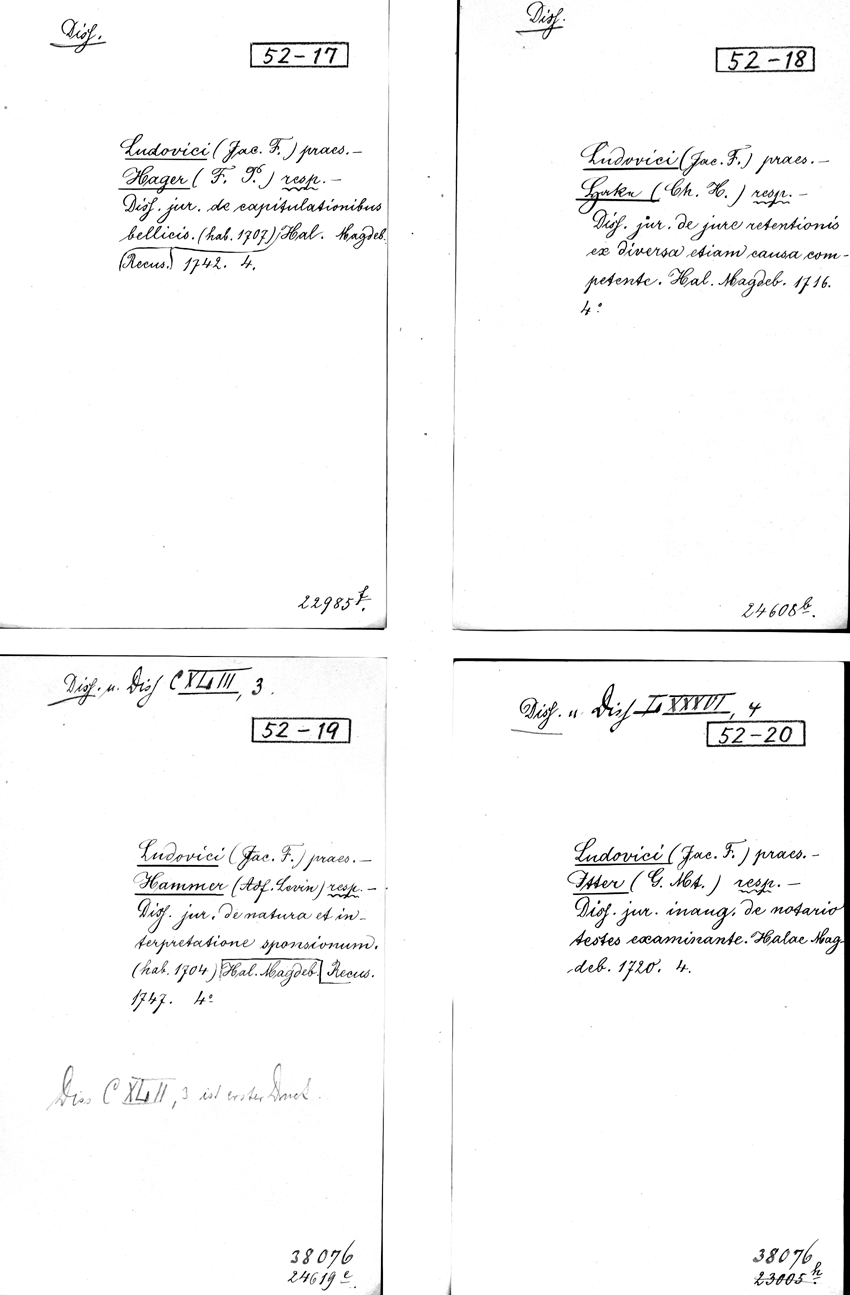 Diss.
52-17
Ludovici (Jac. F.) praes. –
Hager (F. P.) resp. –
Diss. jur. de capitulationibus
bellicis. (hab. 1707) Hal. Magdeb.
Recus. 1742. 4.
22985 f.
Diss.
52-18
Ludovici (Jac. F.) praes. –
(Ch. H.) resp. –
Diss. jur. de jure retentionis
ex diversa etiam causa com-
petente. Hal. Magdeb. 1716.
4°
24608 b.
Diss. u. Diss CXLIII, 3.
52-19
Ludovici (Jac. F.) praes. –
Hammer (Ad. Levin) resp. –
Diss. jur. de natura et in-
terpretatione sponsionum.
(hab. 1704) Hal. Magdeb. Recus.
1747. 4°
Diss CXLII, 3 ist erster Druck.
38076
24619 c.
Diss. u. Diss LXXXVI, 4
52-20
Ludovici (Jac. F.) praes. –
Itter (G. Mt.) resp. –
Diss. jur. inaug. de notario
testes examinante. Halae Mag
deb. 1720. 4.
38076
23005 h.